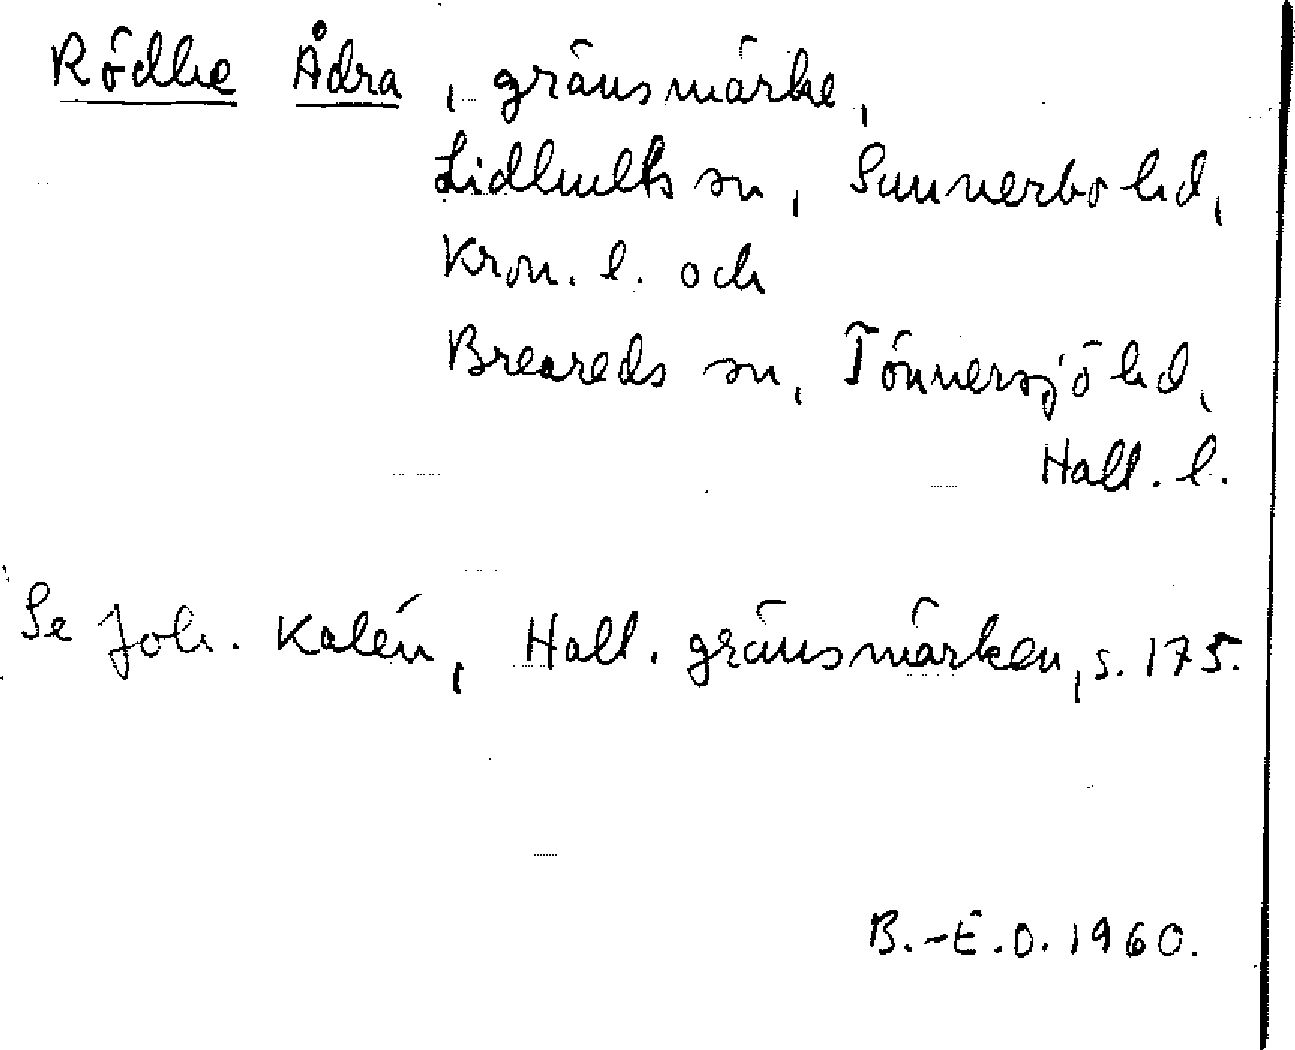 Rödhe Ådra, gränsmärke,
Lidhults sn, Sunnerbo hd,
Kron. l. och
Breareds sn, Tönnersjö hd,
Hall. l.
Se Joh. Kalén, Hall. gränsmärken, s. 175.
B.-E.O. 1960.